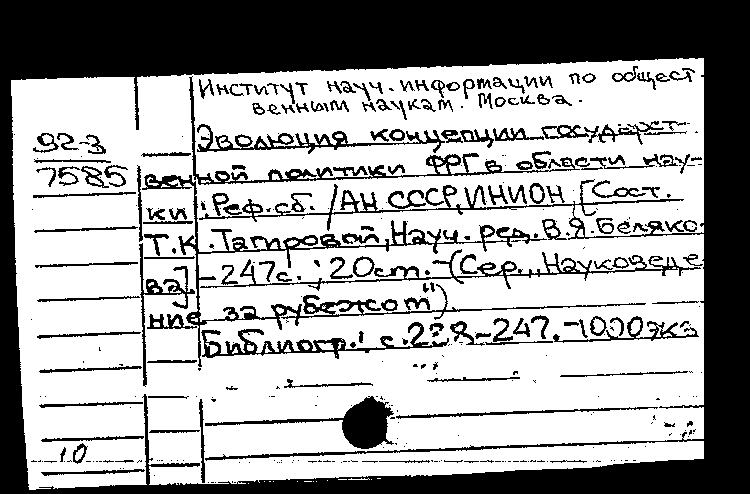 Институт науч. информации по общест-
венным наукам. Москва.
92-3
Эволюция концепции государст-
7585
венной политики ФРГ в области нау-
ки : Реф. сб. / АН СССР, ИНИОН ; [Сост.
Т.К. Тагировой, Науч. ред. В.Я. Беляко-
ва]. - 247с. ; 20см. - (Сер. „Науковеде
ние за рубежом").
Библиогр.: с. 228-247. - 1000 экз
10